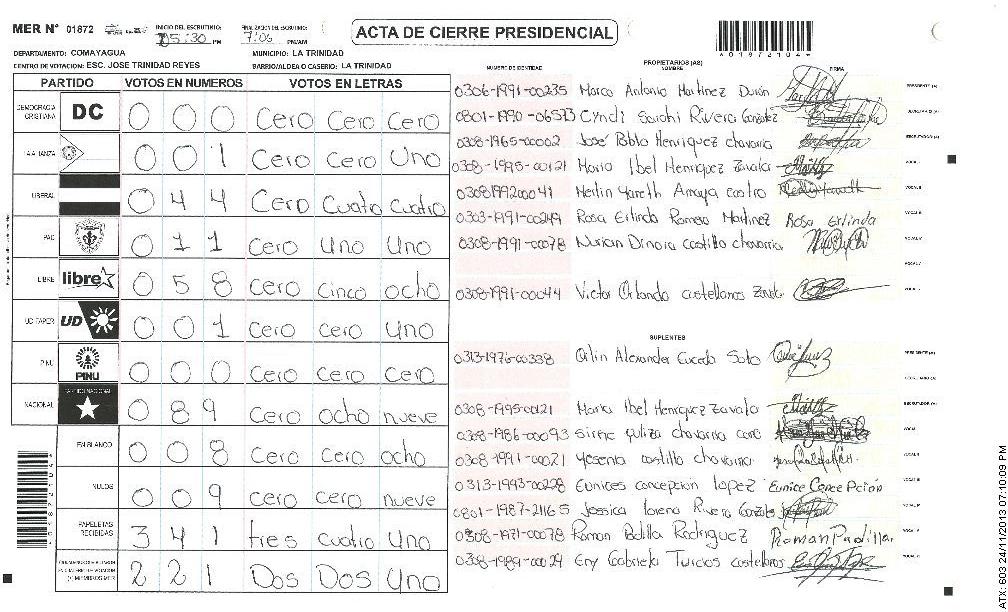 MER N° 01872 INICIO DEL ESCRUTINIO: 05:30 PM FINALIZACION DEL ESCRUTINIO: 7:06 PM/AM
ACTA DE CIERRE PRESIDENCIAL
DEPARTAMENTO: COMAYAGUA MUNICIPIO: LA TRINIDAD
CENTRO DE VOTACION: ESC. JOSE TRINIDAD REYES BARRIO/ALDEA O CASERIO: LA TRINIDAD
PARTIDO VOTOS EN NUMEROS VOTOS EN LETRAS
DEMOCRACIA CRISTIANA DC 0 0 0 Cero Cero Cero
LA ALIANZA 0 0 1 Cero Cero Uno
LIBERAL 0 4 4 Cero Cuatro Cuatro
PAC 0 1 1 Cero Uno Uno
LIBRE libre 0 5 8 Cero Cinco Ocho
UD FAPER UD 0 0 1 Cero Cero Uno
PINU PINU 0 0 0 Cero Cero Cero
NACIONAL PARTIDO NACIONAL 0 8 9 Cero ocho nueve
EN BLANCO 0 0 8 Cero Cero ocho
NULOS 0 0 9 cero cero nueve
PAPELETAS RECIBIDAS 3 4 1 tres Cuatro Uno
2 2 1 Dos Dos Uno
401872104
NUMERO DE IDENTIDAD PROPIETARIOS (AS) NOMBRE FIRMA
0306-1991-00235 Marco Antonio Martinez Durón PRESIDENTE (A)
0801-1990-06573 Cyndi Sarahi Rivera Gonzalez
0308-1965-00002 José Pablo Henriquez chavarria
0308-1995-00121 Maria Ibel Henriquez Zavala
0308199200041 Merlin Yareth Amaya castro
0303-1991-00249 Rosa Erlinda Romero Martinez Rosa Erlinda
0308-1991-00078 Nurian Dinora castillo chavarria
0308-1991-00044 Victor Orlando castellanos Zavala
SUPLENTES
0313-1976-00338 Alexander Soto PRESIDENTE (A)
0308-1995-0121 Maria Ibel Henriquez Zavala
0308-1986-00093 chavarria
0308-1991-00021 Yesenia castillo chavarria
0313-1993-00228 Eunices concepción Lopez Eunice Concepción
0801-1987-21165 Jessica Lorena Rivera Gonzalez
0308-1971-00078 Ramon Padilla Rodriguez Roman Padilla
0308-1989-00024 Eny Gabriela Turcios castellanos
ATX: 603 24/11/2013 07:10:09 PM